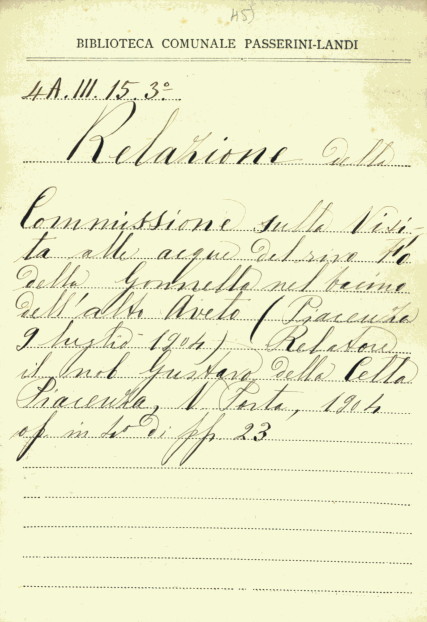 45)
BIBLIOTECA COMUNALE PASSERINI-LANDI
4A.III.15.3º
Relazione della
Commissione sulla Visi-
ta alle acque del rivo
della Gonnella nel bacino
dell'alto Aveto (Piacenza
9 luglio 1904) Relatore
il nob Gustavo della Cella
Piacenza, V. Porta, 1904
op in 4º di pp 23